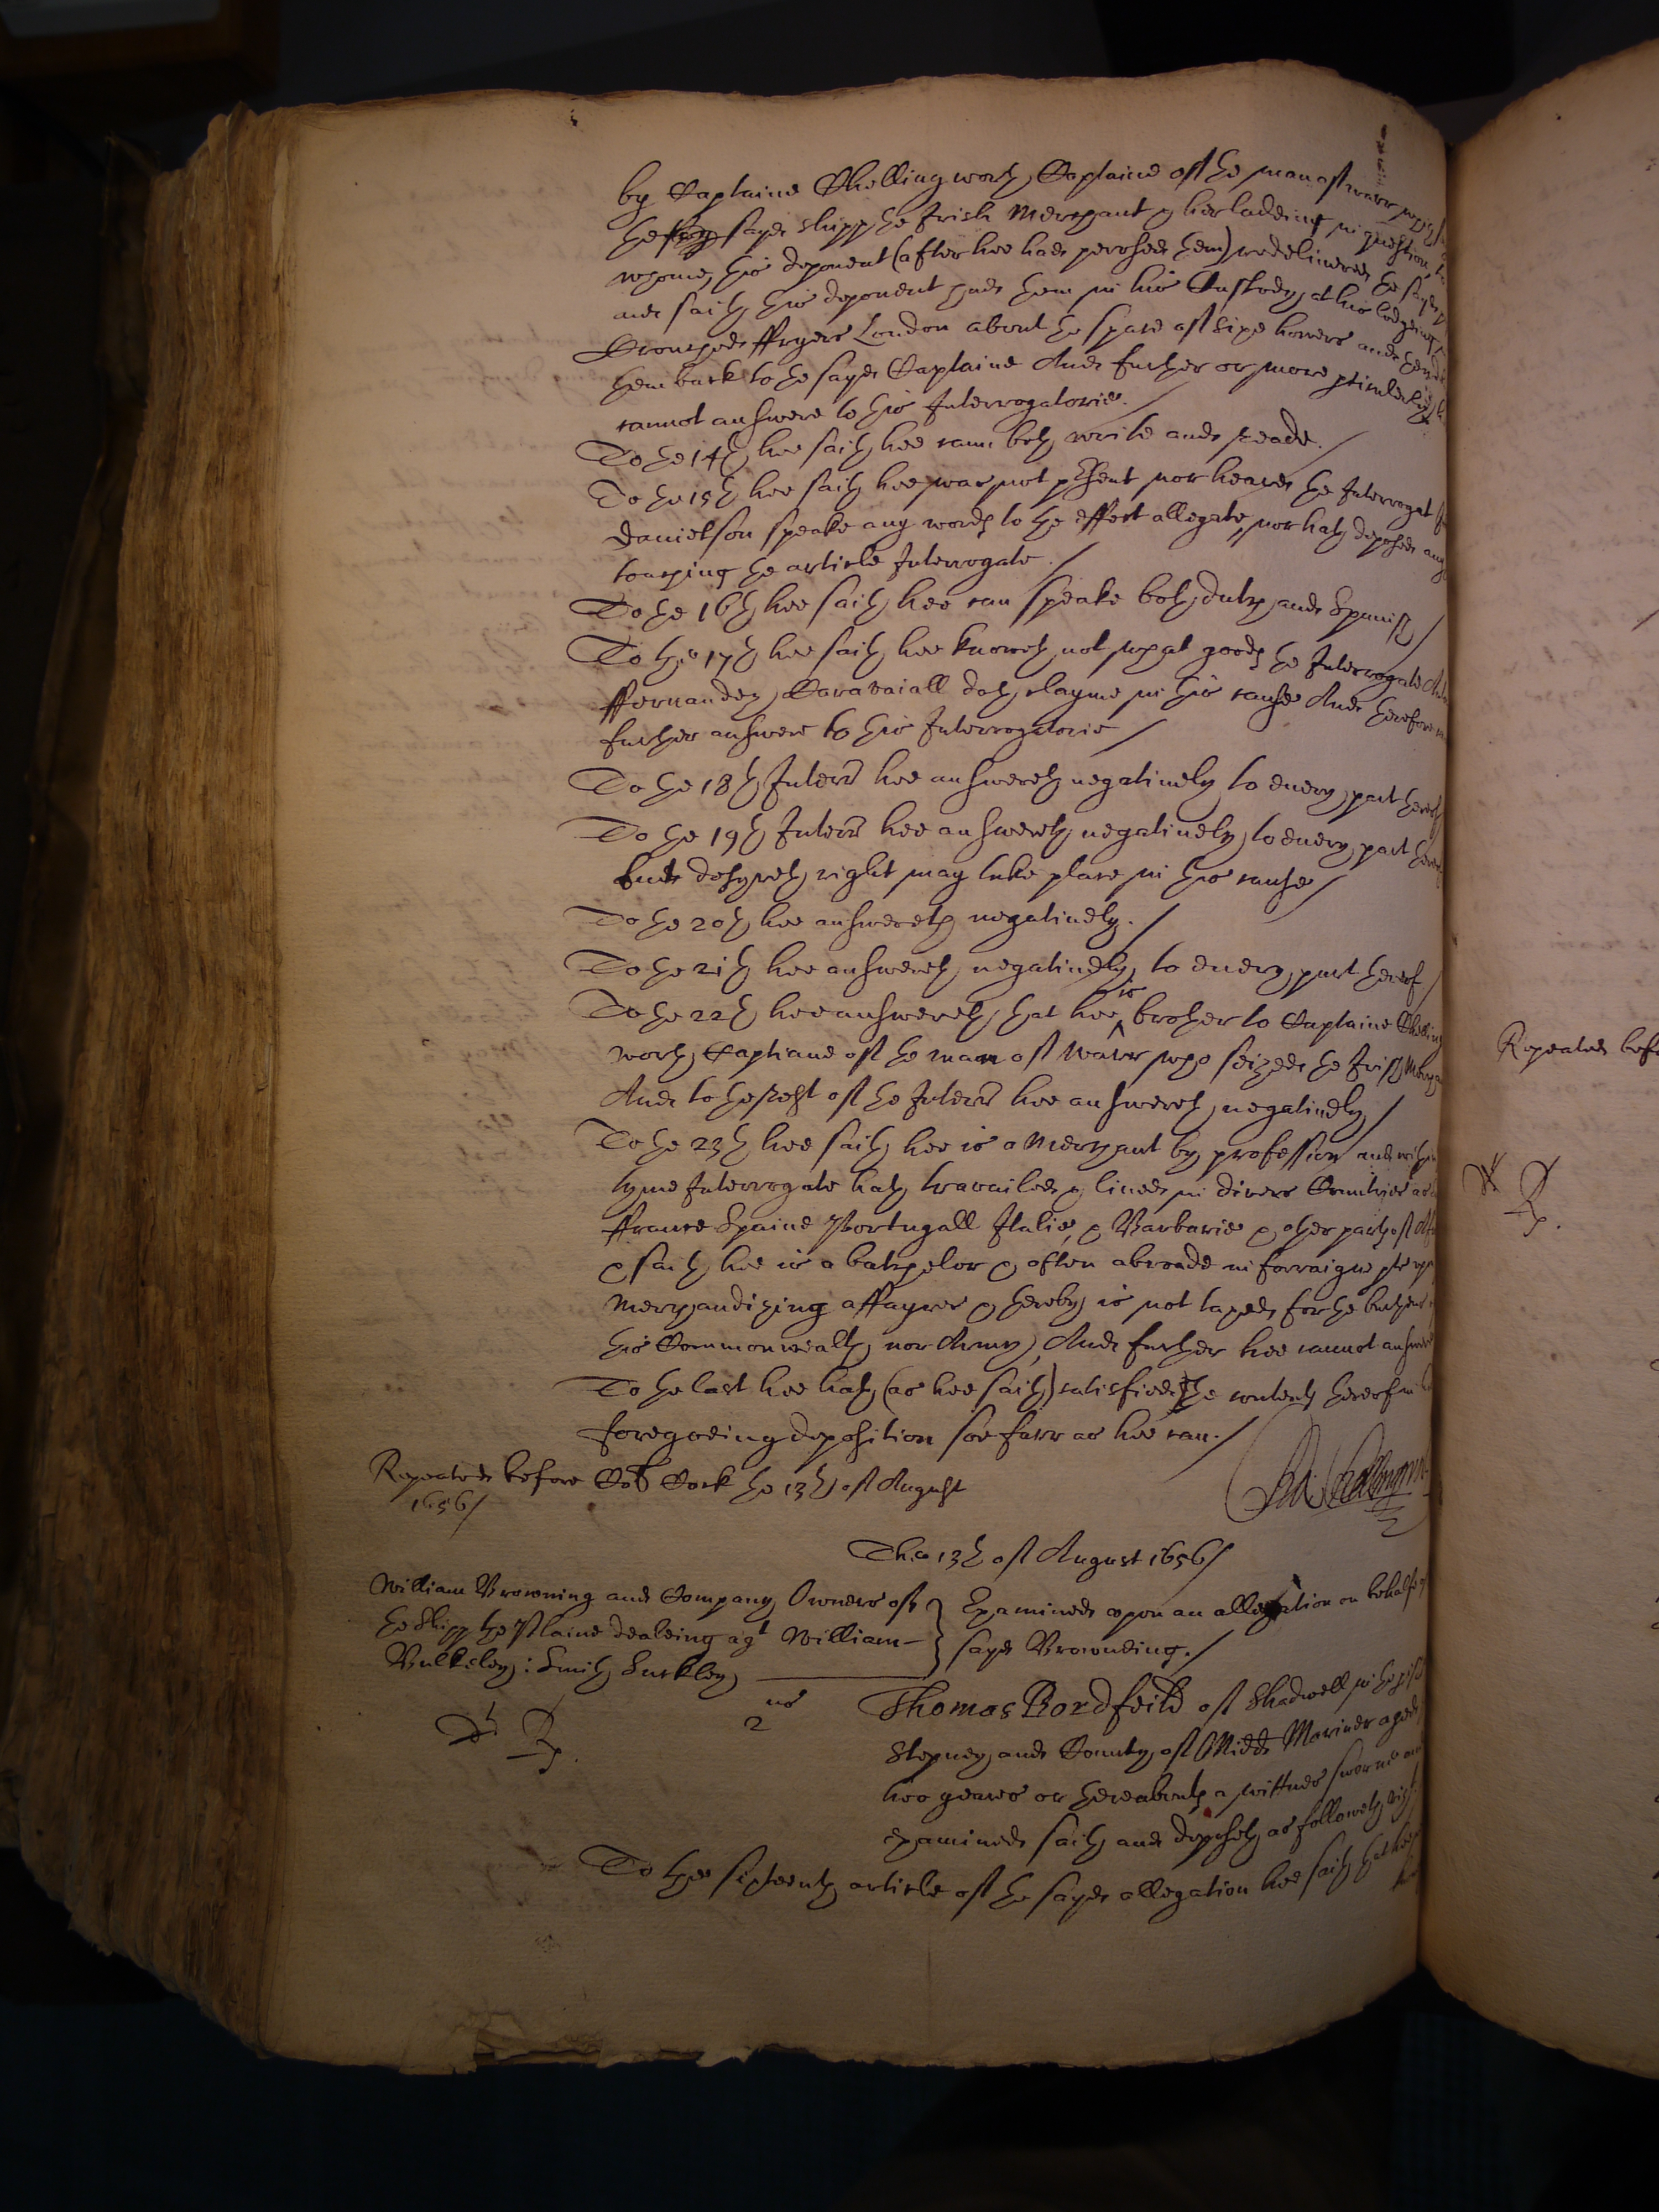 by Captaine Skellingworth Captaine of the man of warr which
the said sayd shipp the Irish Merchant & her ladeing in question, to
whome this deponent (after hee had perused them) redelivered the sayd
and saith this deponent had them in his Custody at his lodgeing
Crouched ffryers London about the space of sixe howers and then
them back to the sayd Captaine And further or more pticulerly hee
cannot answere to this Interrogatorie./
To the 14th hee saith hee cann both write and reade./
To the 15th hee saith hee was not psent nor heard the Interrogat
Danielson speake any words to the effect allegate, nor hath deposed any
touching the article Interrogate./
To the 16th hee saith hee can speake both dutch and Spanish/
To the 17th hee saith hee knoweth not what goods the Interrogate
ffernandez Caravaiall doth clayme in this cause And therefore
further answere to this Interrogatorie/
To the 18th Interr hee answereth negatively to every part thereof
To the 19th Interr hee answereth negatively, to every part thereof
but desyreth right may take place in this cause/
To the 20th hee answereth negatively./
To the 21th hee answereth negatively, to every part thereof/
To the 22th hee answereth that hee is brother to Captaine Skelling
worth Captiane of the man of warr who seized the Irish Merchant
And to the rest of the Interr hee answereth negatively/
To the 23th hee saith hee is a Merchant by profession and within
tyme Interrogate hath travailed & lived in divers Countries as
ffrance Spaine Portugall Italie, & Barbarie & other parts of
& saith hee is a batchelor & often abroade in forraigne pts upon
Merchandizing affayres & thereby is not taxed for the buthens
this Commonwealth nor Army, And further hee cannot answere
To the last hee hath (as hee saith) satisfied the contents thereof in
foregoeing deposition soe farr as hee can./
Repeated before Coll Cock the 13th of August
1656/
The 13th of August 1656/
William Browning and Company Owners of
the Shipp the Plaine dealeing agt William
Bulkeley: Smith Suckley
Examined upon an allegation on behalfe of
sayd Browneing./
Dt Rp.
2us
Thomas Bordfeild of Shadwell in the pish
Stepney and County of Midds Mariner aged
two yeares or thereabouts a wittnes sworne and
examined saith and deposeth as followeth vizt.
To the sixteenth article of the sayd allegation hee saith that hee
Repeated befo